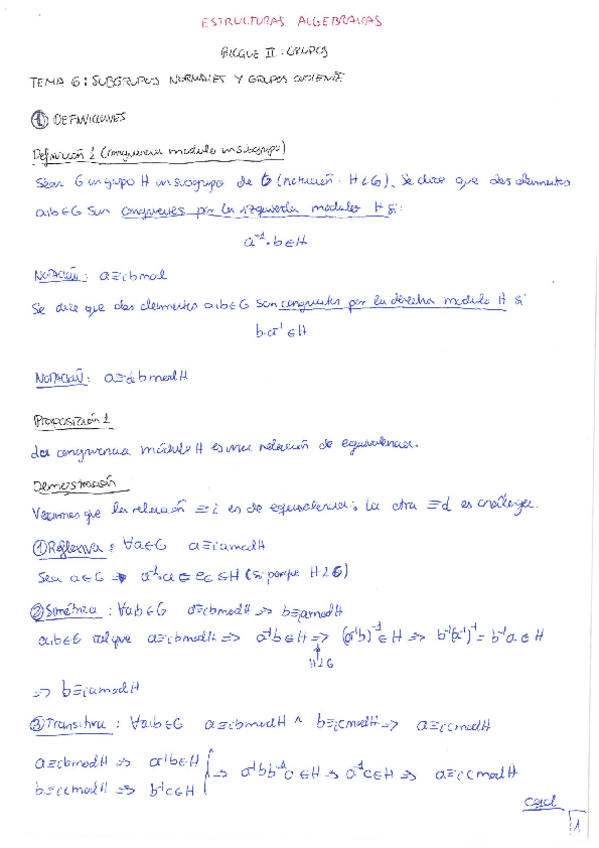 ESTRUCTURAS ALGEBRAICAS
BLOQUE II: GRUPOS
TEMA 6: SUBGRUPOS NORMALES Y GRUPOS COCIENTE
① DEFINICIONES
Definición 1 (congruencia modulo un subgrupo)
Sean G un grupo H un subgrupo de G (notación: H≤G). Se dice que dos elementos
a,b∈G son congruentes por la izquierda modulo H si:
a⁻¹·b∈H
NOTACIÓN: a≡ᵢb mod
Se dice que dos elementos a,b∈G son congruentes por la derecha modulo H si
b·a⁻¹∈H
NOTACIÓN: a≡d b mod H
Proposición 1
La congruencia módulo H es una relación de equivalencia.
Demostración
Veamos que la relación ≡i es de equivalencia; la otra ≡d es análoga.
① Reflexiva: ∀a∈G a≡ᵢa mod H
Sea a∈G ⇒ a⁻¹·a = e_G ∈ H (si porque H≤G)
② Simétrica: ∀a,b∈G a≡ᵢb mod H ⇒ b≡ᵢa mod H
a,b∈G tal que a≡ᵢb mod H ⇒ a⁻¹b∈H ⇒ (a⁻¹b)⁻¹∈H ⇒ b⁻¹(a⁻¹)⁻¹ = b⁻¹a ∈ H
H≤G
⇒ b≡ᵢa mod H
③ Transitiva: ∀a,b∈G a≡ᵢb mod H ∧ b≡ᵢc mod H ⇒ a≡ᵢc mod H
a≡ᵢb mod H ⇒ a⁻¹b∈H
b≡ᵢc mod H ⇒ b⁻¹c∈H ⇒ a⁻¹bb⁻¹c∈H ⇒ a⁻¹c∈H ⇒ a≡ᵢc mod H
cqd
1